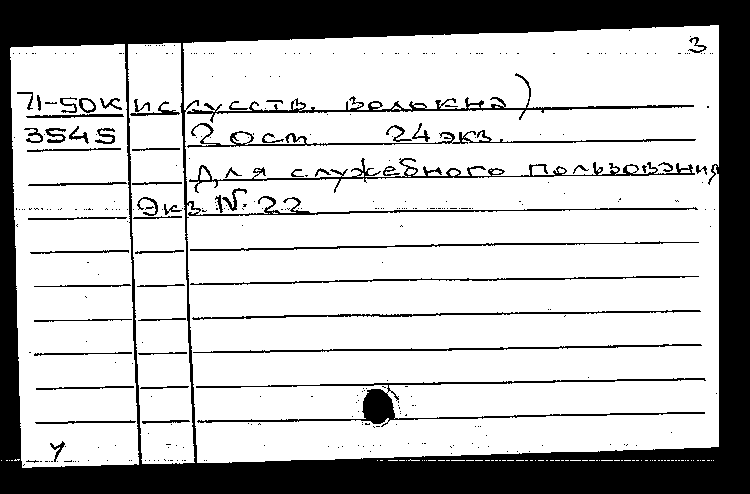 3
71-50к искусств. волокна).
3545 20 см 24 экз.
Для служебного пользования
Экз. №. 22